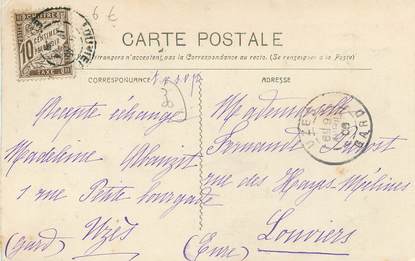 6 6
CHIFFRE
10 CENTIMES
À PERCEVOIR
TAXE
LOUVIERS
CARTE POSTALE
étrangers n'acceptent pas la Correspondance au recto. (Se renseigner à la Poste)
CORRESPONDANCE
ADRESSE
Accepte échange
Madeleine Abauzit
1 rue Petite bourgade
Uzès
(Gard)
Mademoiselle
Fernande
rue des Hayes Mélines
Louviers
(Eure)
UZÈS
GARD